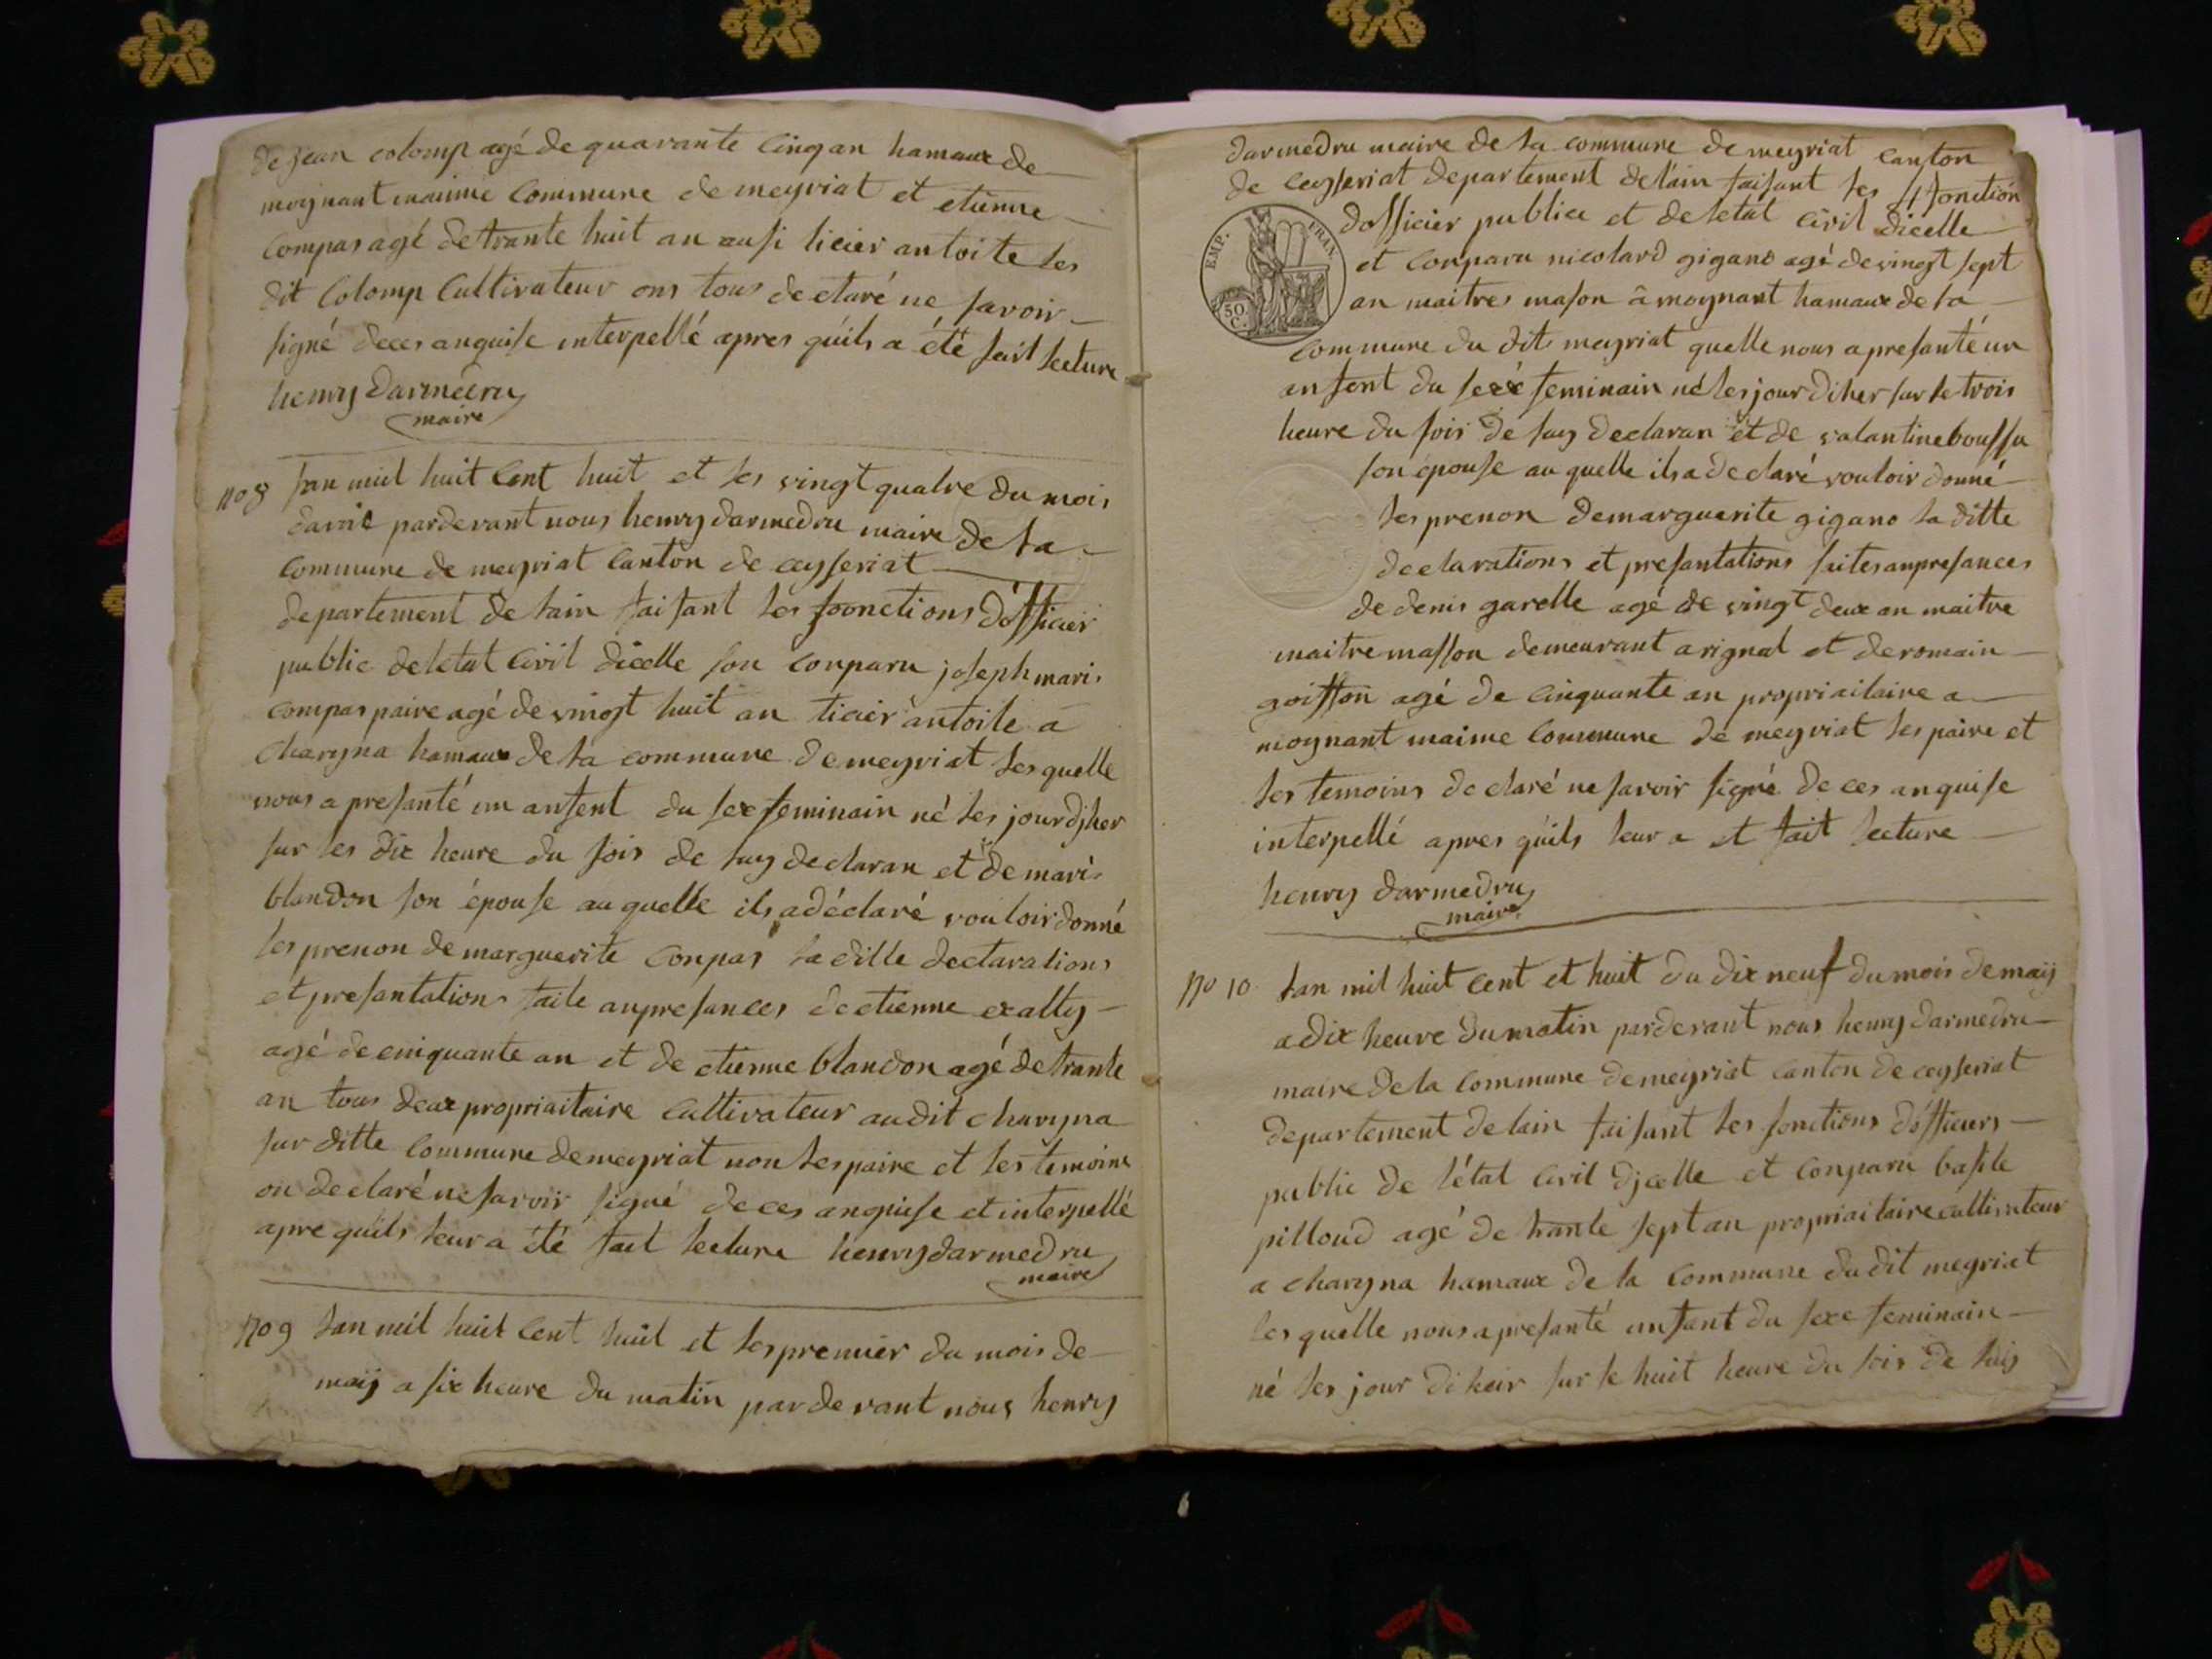 de jean colomp agé de quarante cinq an hamaux de
moynant maime commune de meyriat et etienne
compas agé de trante huit an ausi ticier antoite les
dit Colomp Cultivateur ons tous declaré ne savoir
signé deces anquise interpellé apres quils a été fait lecture
henry darmedru
maire
no 8 lan mil huit Cent huit et les vingt quatre du mois
davril pardevant nous henry darmedru maire de la
commune de meyriat Canton de ceyseriat
departement de lain faisant les fonctions d'officier
public de letat Civil dicelle son conparu joseph mari
compas paire agé de vingt huit an ticier antoile a
charyna hamaux de la commune de meyriat lesquelle
nous a presanté un anfent du sexe feminain né les jour djher
sur les dix heure du soir de luy declaran et de mari
blandon son épouse au quelle ils a déclaré vouloir donné
les prenon de marguerite conpas la ditte declarations
et presantations faite anpresances de etienne exalty
agé de cinquante an et de etienne blandon agé de trante
an tous deux propriaitaire Cultivateur audit charyna
sur ditte commune de meyriat non les paire et les temoins
on declaré ne savoir signé deces anquise et interpellé
apre quils leur a été fait lecture henry darmedru
maire
no 9 lan mil huit Cent huit et les premier du mois de
maij a six heure du matin pardevant nous henry
darmedru maire de la commune de meyriat Canton
de ceyseriat departement de lain faisant les fonction
EMP. FRAN.
50 C.
dofficier publice et de letat civil dicelle
et Conparu nicolard gigano agé de vingt sept
an maitres mason à moynant hamaux de la
commune du dit meyriat quelle nous a presanté un
anfent du sexe feminain né les jour diher sur le trois
heure du soir de luy declaran et de valantine boussu
son épouse au quelle ils a declaré vouloir donné
les prenon demarguerite gigano la ditte
declarations et presantations faites anpresances
de denis garelle agé de vingt deux an maitre
maitre masson demeurant a rignat et de romain
goiffon agé de cinquante an propriaitaire a
moynant maime commune de meyriat les paire et
les temoins declaré ne savoir signé de ces anquise
interpellé apres quils leur a et fait lecture
henry darmedru
maire
no 10 lan mil huit cent et huit du dix neuf du mois de maij
a dix heure du matin pardevant nous henry darmedru
maire de la commune de meyriat canton de ceyseriat
departement de lain faisant les fonctions d'officiers
public de l'état civil djcelle et conparu basile
pilloud agé de trante sept an propriaitaire cultivateur
a charyna hamaux de la commune du dit meyriat
les quelle nous a presanté anfant du sexe feminain
né les jour diheir sur le huit heure du soir de luij